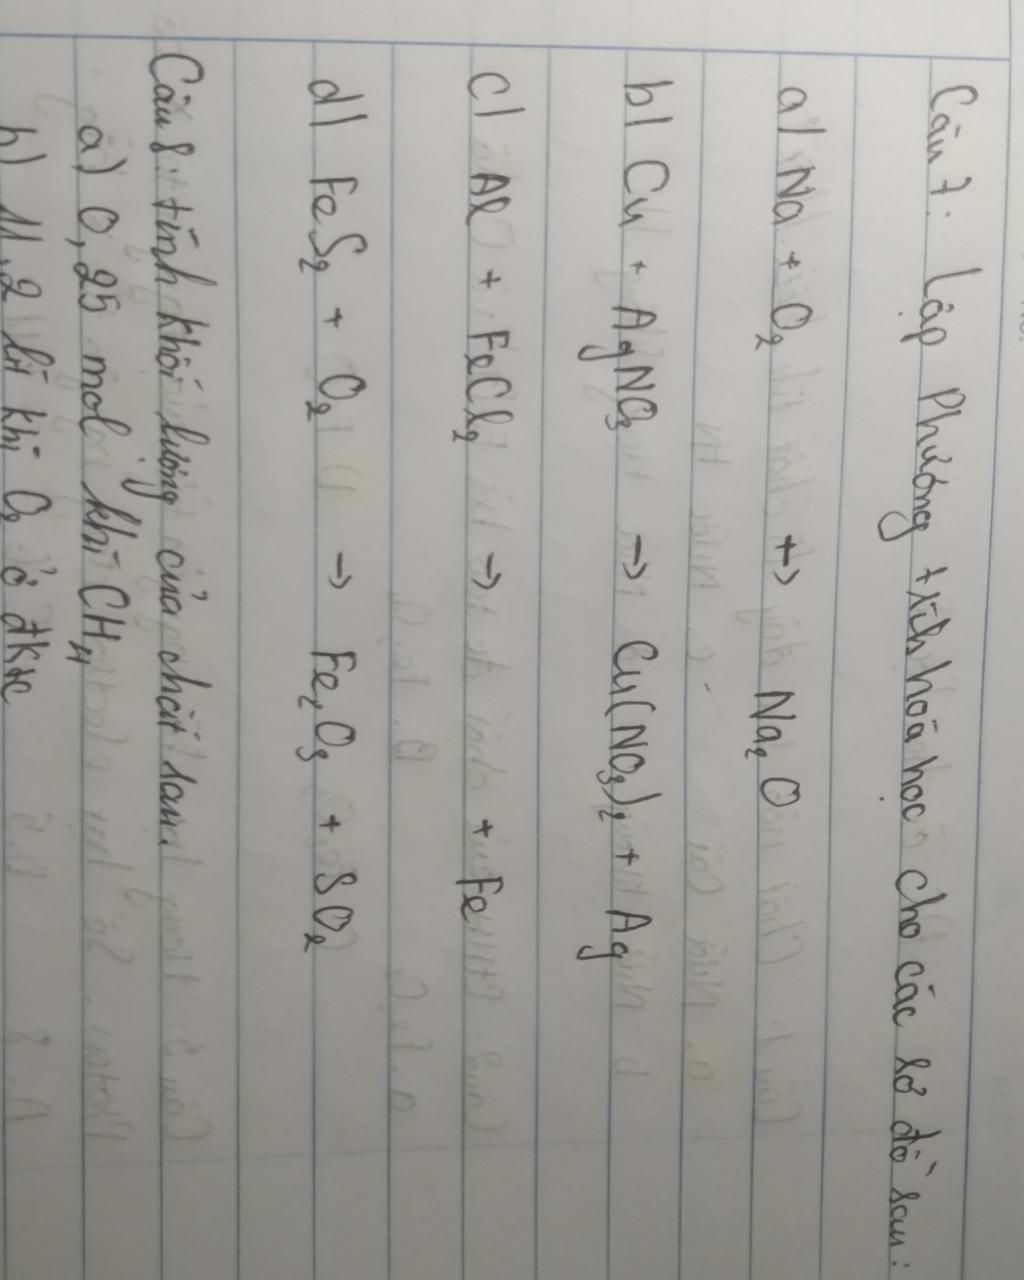 Câu 7: Lập Phương trình hóa học cho các sơ đồ sau:
a) Na + O₂ → Na₂O
b) Cu + AgNO₃ → Cu(NO₃)₂ + Ag
c) Al + FeCl₂ → + Fe
d) FeS₂ + O₂ → Fe₂O₃ + SO₂
Câu 8: tính khối lượng của chất sau.
a) 0,25 mol khí CH₄
b) 11,2 lít khí O₂ ở đktc